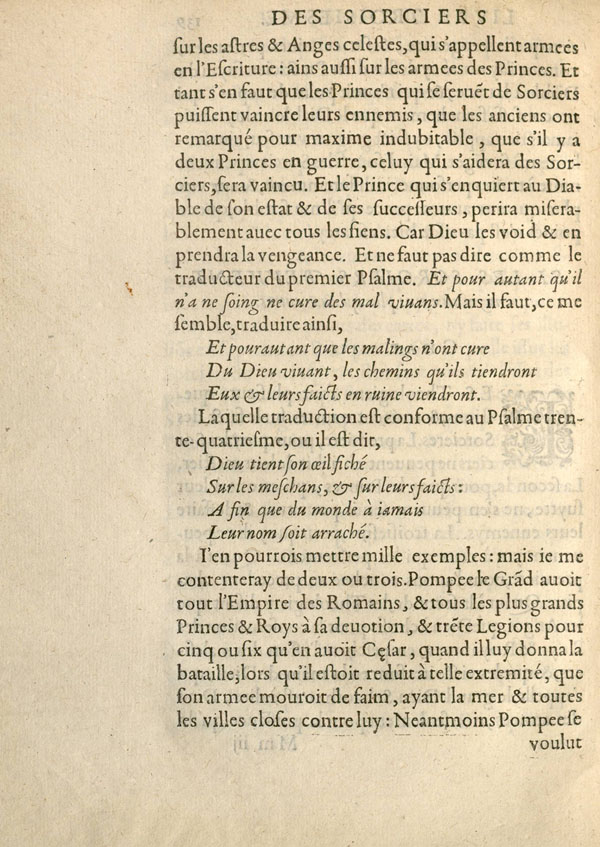 DES SORCIERS
ſur les aſtres & Anges celeſtes, qui s'appellent armees
en l'Eſcriture: ains auſſi ſur les armees des Princes. Et
tant s'en faut que les Princes qui ſe ſeruẽt de Sorciers
puiſſent vaincre leurs ennemis, que les anciens ont
remarqué pour maxime indubitable, que s'il y a
deux Princes en guerre, celuy qui s'aidera des Sor-
ciers, ſera vaincu. Et le Prince qui s'enquiert au Dia-
ble de ſon eſtat & de ſes ſucceſſeurs, perira miſera-
blement auec tous les ſiens. Car Dieu les void & en
prendra la vengeance. Et ne faut pas dire comme le
traducteur du premier Pſalme. Et pour autant qu'il
n'a ne ſoing ne cure des mal viuans. Mais il faut, ce me
ſemble, traduire ainſi,
Et pourautant que les malings n'ont cure
Du Dieu viuant, les chemins qu'ils tiendront
Eux & leurs faicts en ruine viendront.
Laquelle traduction eſt conforme au Pſalme tren-
te-quatrieſme, ou il eſt dit,
Dieu tient ſon œil fiché
Sur les meſchans, & ſur leurs faicts:
A fin que du monde à iamais
Leur nom ſoit arraché.
I'en pourrois mettre mille exemples: mais ie me
contenteray de deux ou trois. Pompee le Grãd auoit
tout l'Empire des Romains, & tous les plus grands
Princes & Roys à ſa deuotion, & trẽte Legions pour
cinq ou ſix qu'en auoit Cęſar, quand il luy donna la
bataille, lors qu'il eſtoit reduit à telle extremité, que
ſon armee mouroit de faim, ayant la mer & toutes
les villes cloſes contre luy: Neantmoins Pompee ſe
voulut